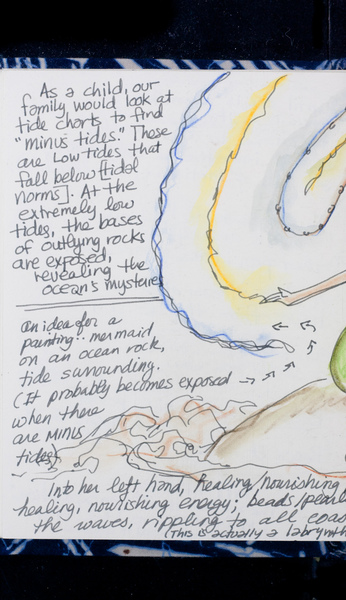 As a child, our
family would look at
tide charts to find
"minus tides." These
are low tides that
fall below [tidal
norms]. At the
extremely low
tides, the bases
of outlying rocks
are exposed,
revealing the
ocean's mysteries
An idea for a
painting: mermaid
on an ocean rock,
tide surrounding.
(It probably becomes exposed
when there
are MINUS
tides).
Into her left hand, healing/nourishing
healing, nourishing energy; beads/pearl
the waves, rippling to all coas
(This is actually a labrynth